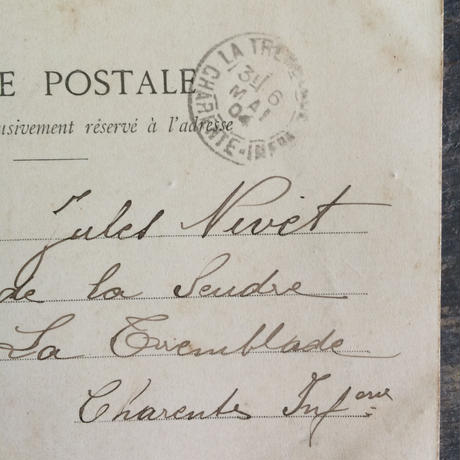 E POSTALE
usivement réservé à l'adresse
LA TREM
CHARENTE-INFRE
6
MAI
04
Jules Nivet
de la Seudre
La Tremblade
Charente Infere